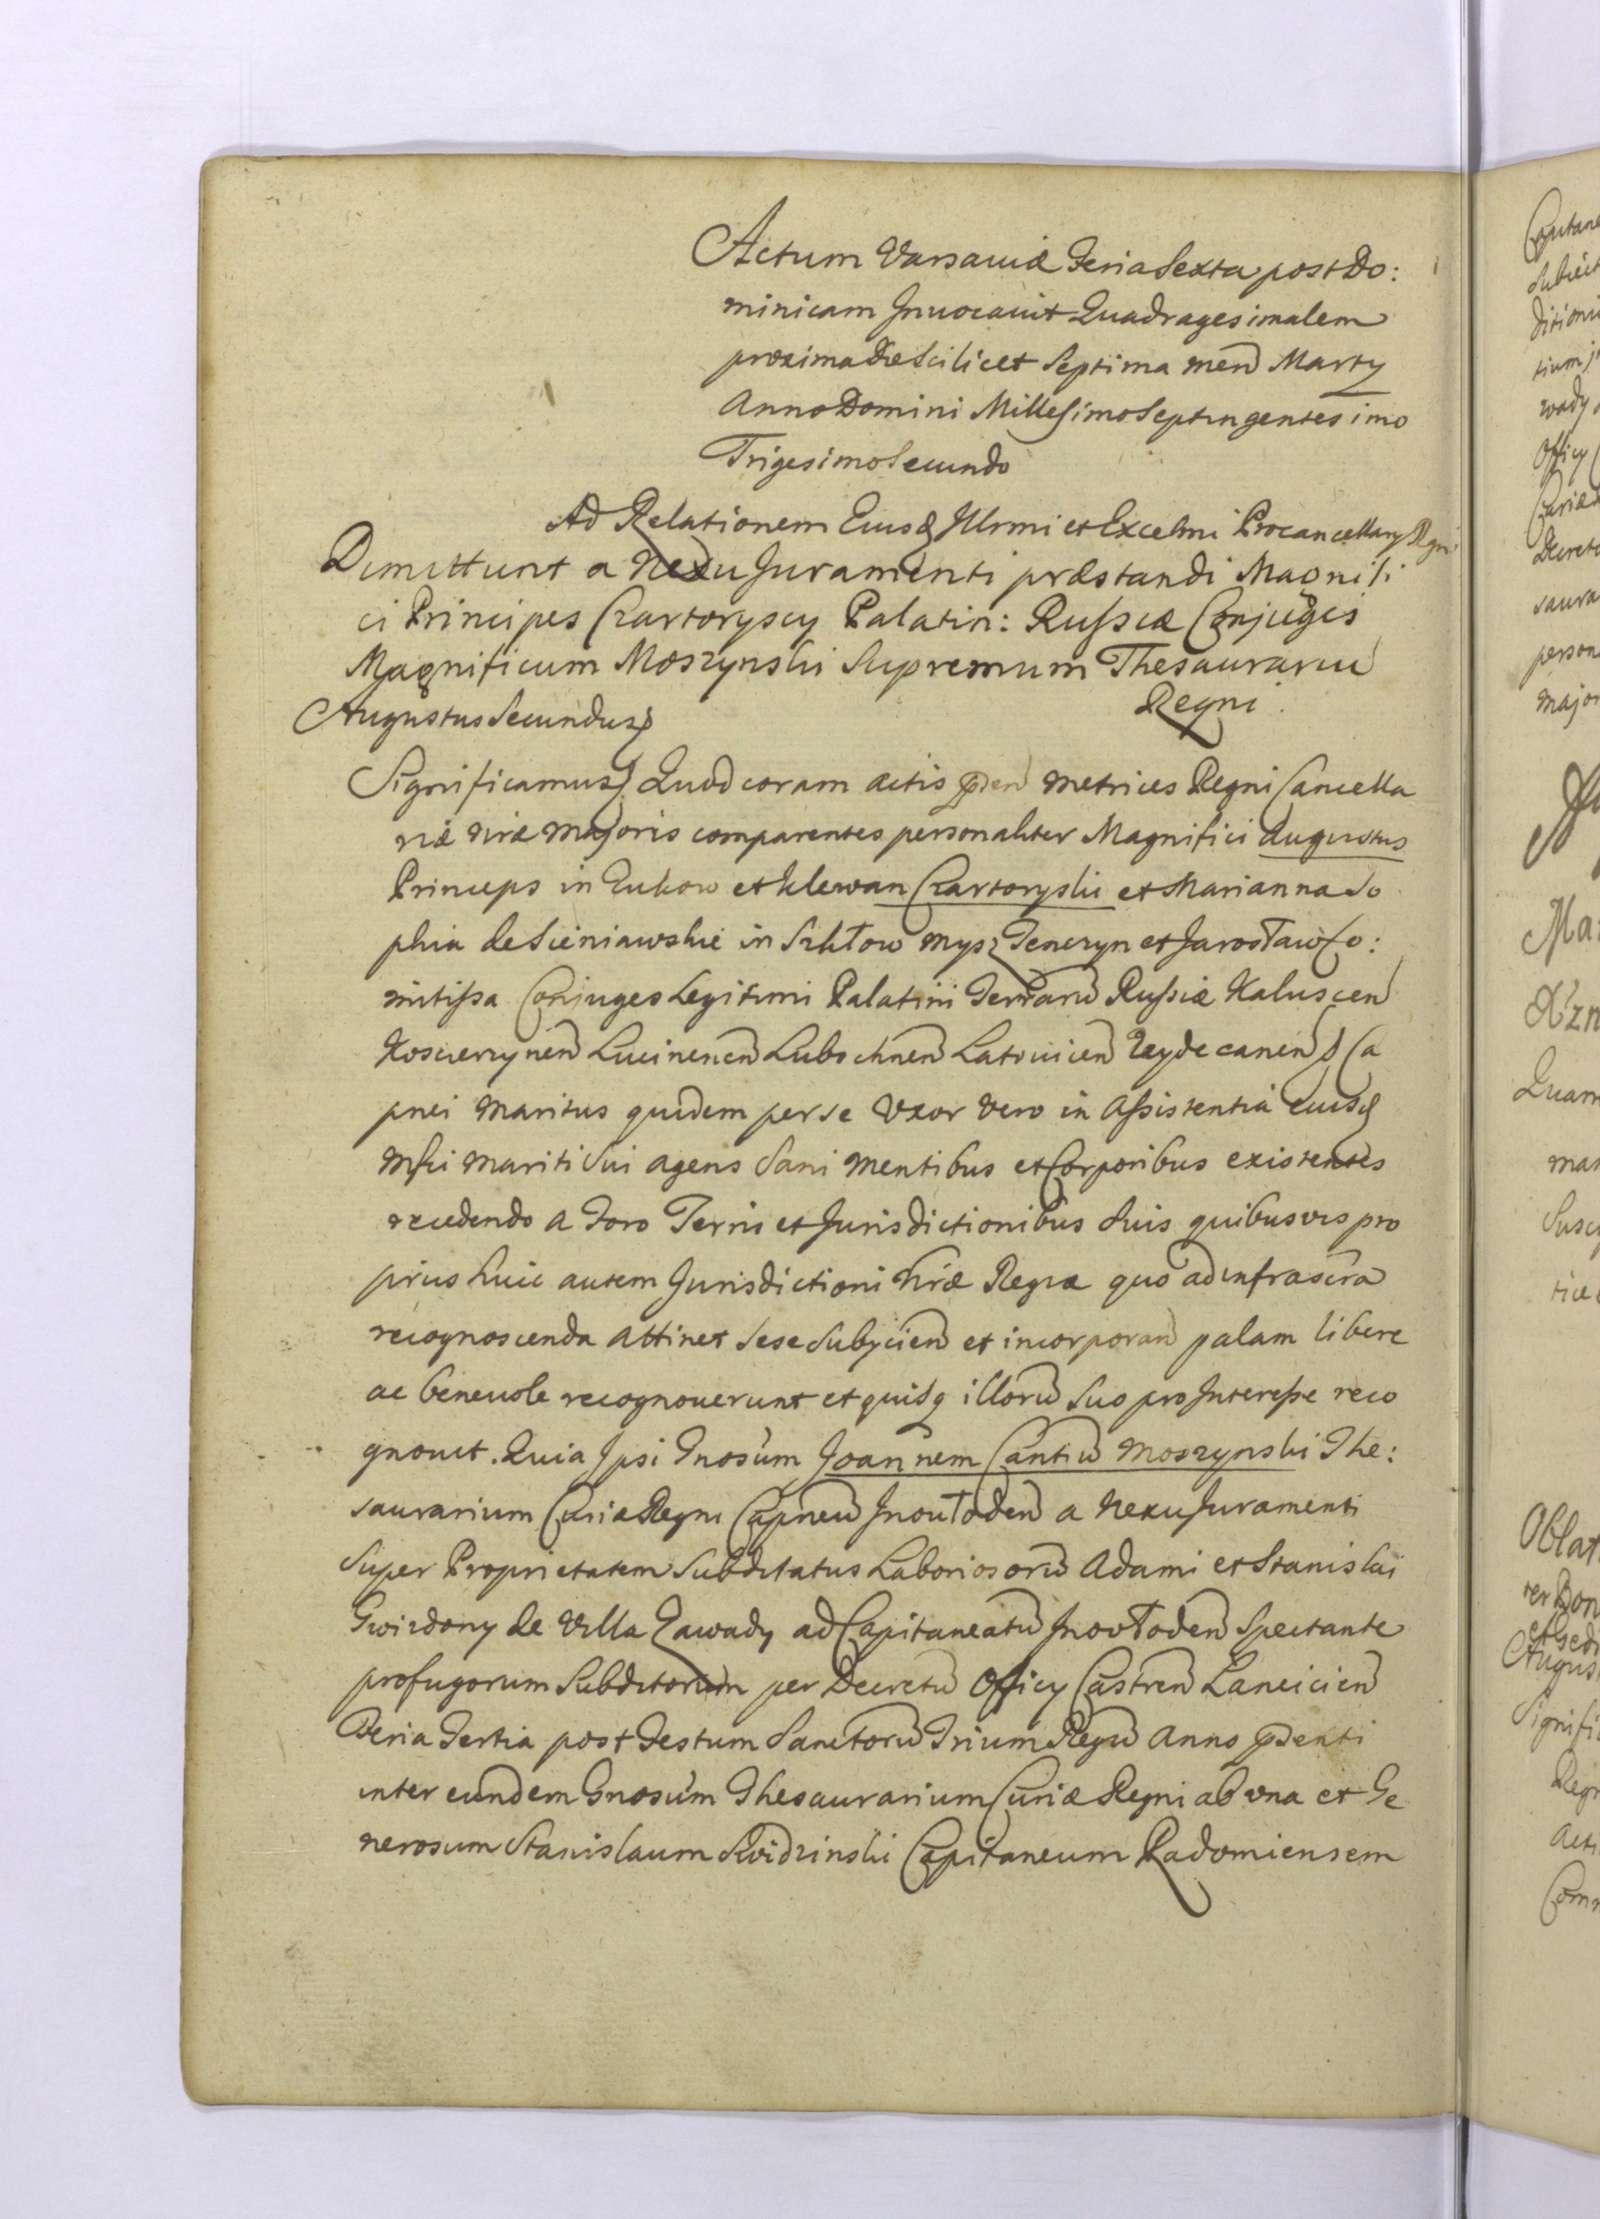 Actum Varsaviæ Feria Sexta post Do:
minicam Invocavit Quadragesimalem
proxima die Scilicet Septima men̄ Marty
Anno Domini Millesimo Septingentesimo
Trigesimo Secundo
Ad Relationem Eiusd Illrmi et Excelmi Procancellary Regni
Dimittunt a Nexu Juramenti præstandi Magnifi
ci Principes Czartoryscy Palatin: Russiæ Conjuges
Magnificum Moszynski Supremum Thesaurariū
Regni
Augustus Secundus
Significamus Quod coram actis pñ Metrices Regni Cancella
riæ nræ Majoris comparentes personaliter Magnifici Augustus
Princeps in Zukow et Klewan Czartoryski et Marianna So
phia de Sieniawskie in Szkłow mysz Tenczyn et Jarosław Co:
mitissa Coniuges Legitimi Palatini Terrarū Russiæ Kaluscen̄
Koscierzynen̄ Lucinen̄ Lubochnen̄ Latovicen̄ Ca
pnei Maritus quidem per se Uxor Vero in Assistentia eiusd
Mfici Mariti Sui agens Sani Mentibus et Corporibus existentes
recedendo a Foro Terris et Jurisdictionibus Suis quibusvis pro
prius huic autem Jurisdictioni Nræ Regiæ quo ad infrascra
recognoscenda attinet Sese Subycien̄ et incorporan̄ palam libere
ac benevole recognoverunt et quisq illorū Suo pro Interesse reco
gnovit. Quia Ipsi Gnosum Joannem Cantiū Moszynski The:
saurarium Curiæ Regni Capneū Inowłoden̄ a Nexu Juramenti
Super Proprietatem Subditatus Laboriosorū Adami et Stanislai
Gwizdony de Villa Zawady ad Capitaneatū Inowłoden̄ Spectante
profugorum Subditorum per Decretū Officy Castren̄ Lancicien̄
Feria Tertia post Festum Sanctorū Trium Regū Anno pñti
inter eundem Gnosum Thesaurarium Curiæ Regni ab una et Ge
nerosum Stanislaum Swidzinski Capitaneum Radomiensem